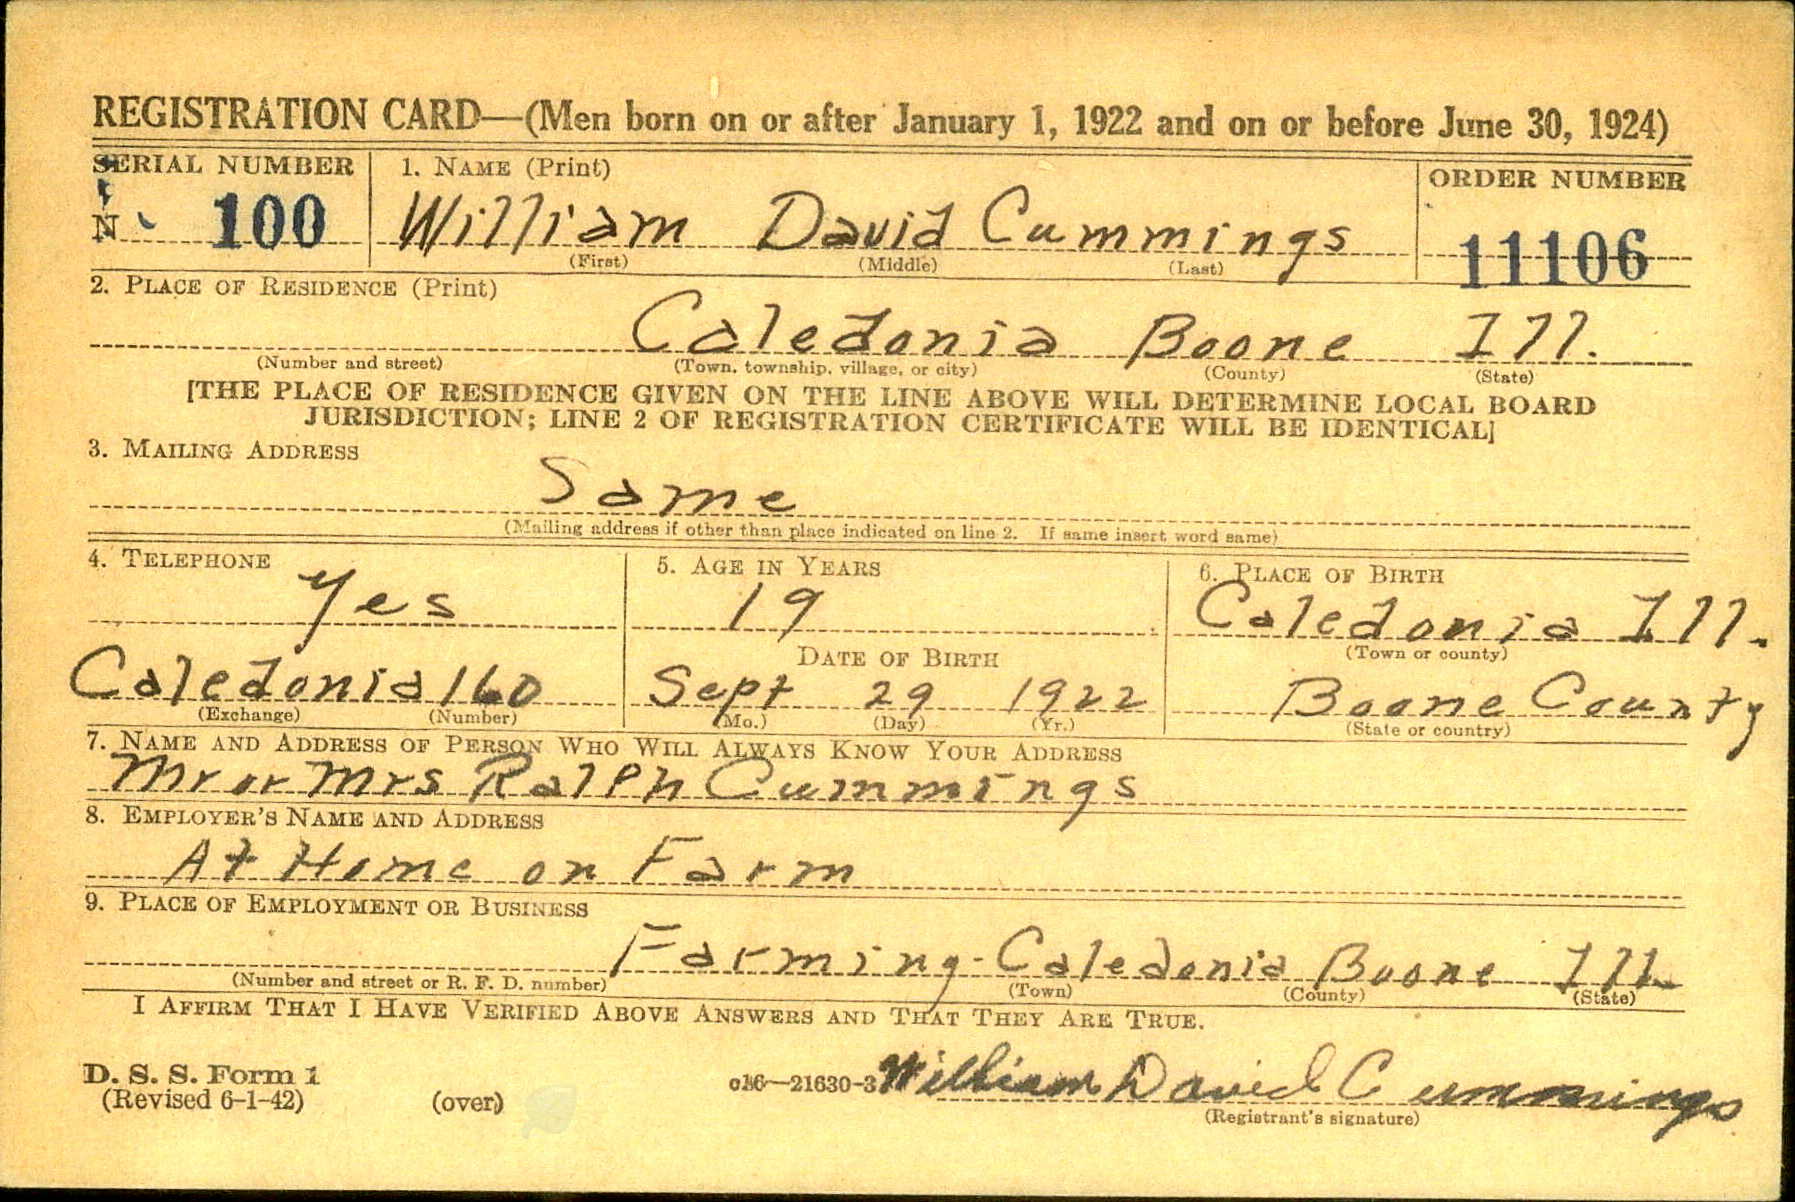 REGISTRATION CARD—(Men born on or after January 1, 1922 and on or before June 30, 1924)
SERIAL NUMBER 1. NAME (Print) ORDER NUMBER
N 100 William David Cummings 11106
(First) (Middle) (Last)
2. PLACE OF RESIDENCE (Print)
Caledonia Boone Ill.
(Number and street) (Town, township, village, or city) (County) (State)
[THE PLACE OF RESIDENCE GIVEN ON THE LINE ABOVE WILL DETERMINE LOCAL BOARD
JURISDICTION; LINE 2 OF REGISTRATION CERTIFICATE WILL BE IDENTICAL]
3. MAILING ADDRESS
Same
(Mailing address if other than place indicated on line 2. If same insert word same)
4. TELEPHONE 5. AGE IN YEARS 6. PLACE OF BIRTH
Yes 19 Caledonia Ill.
DATE OF BIRTH (Town or county)
Caledonia 160 Sept 29 1922 Boone County
(Exchange) (Number) (Mo.) (Day) (Yr.) (State or country)
7. NAME AND ADDRESS OF PERSON WHO WILL ALWAYS KNOW YOUR ADDRESS
Mr or Mrs Ralph Cummings
8. EMPLOYER'S NAME AND ADDRESS
At Home on Farm
9. PLACE OF EMPLOYMENT OR BUSINESS
Farming - Caledonia Boone Ill.
(Number and street or R. F. D. number) (Town) (County) (State)
I AFFIRM THAT I HAVE VERIFIED ABOVE ANSWERS AND THAT THEY ARE TRUE.
D. S. S. Form 1
(Revised 6-1-42) (over) c16—21630-3 William David Cummings
(Registrant's signature)